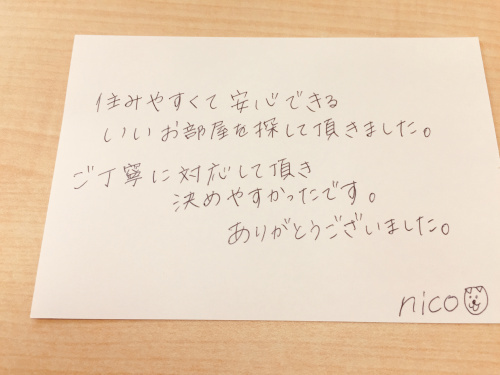 住みやすくて安心できる
いいお部屋を探して頂きました。
ご丁寧に対応して頂き
決めやすかったです。
ありがとうございました。
nico